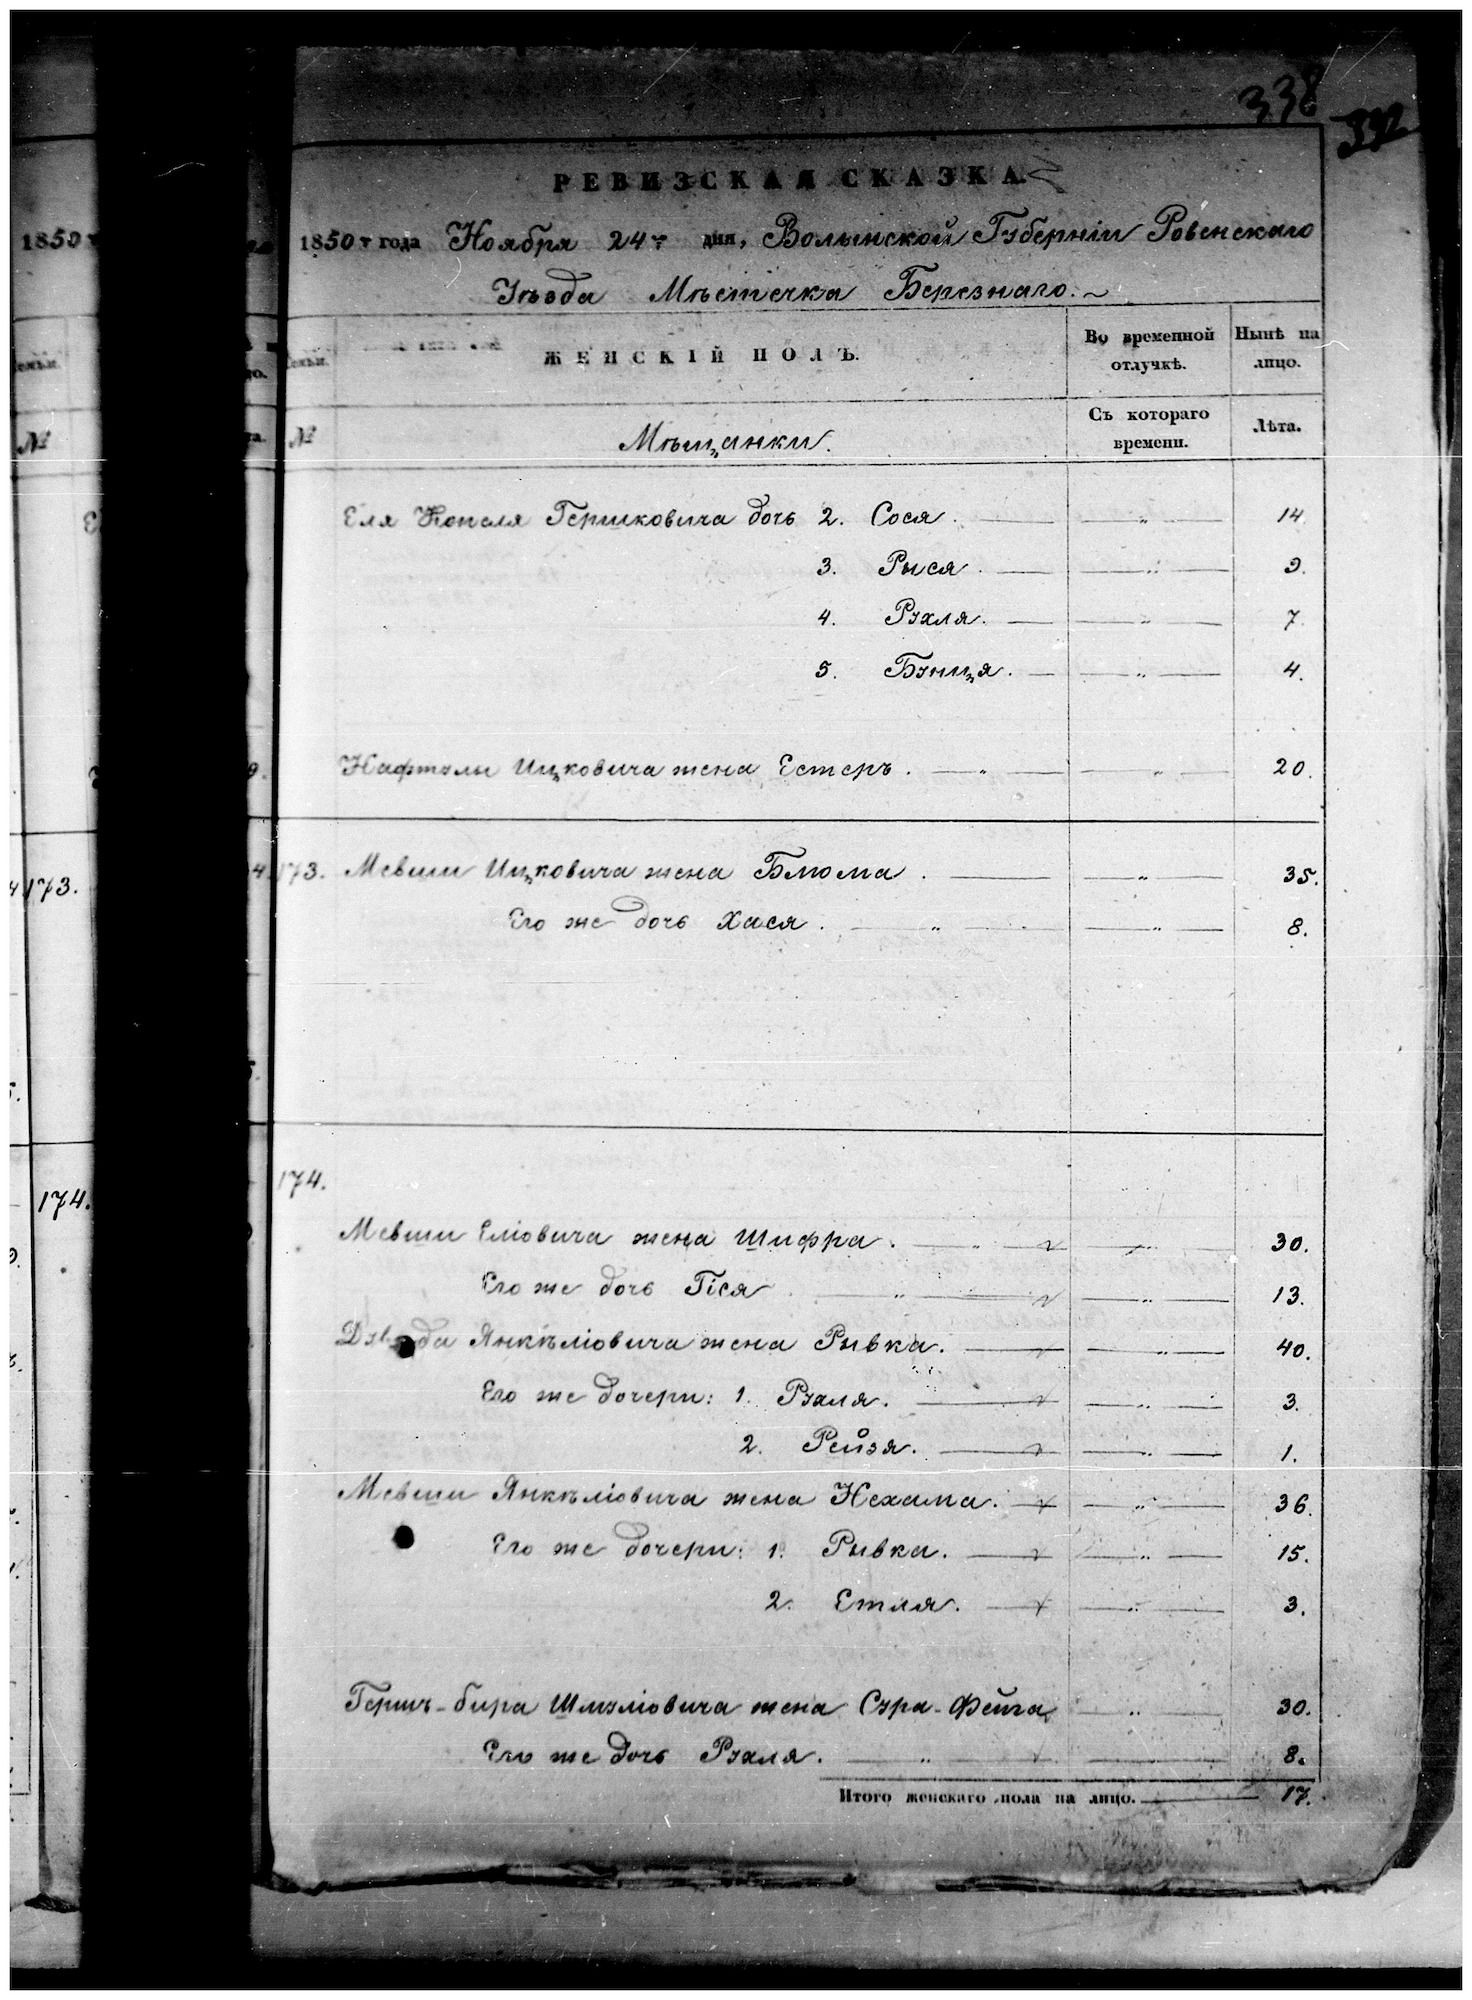 338
332
РЕВИЗСКАЯ СКАЗКА
1850 г года Ноября 24 дня, Волынской Губерніи Ровенскаго
Уѣзда Мѣстечка Березнаго.
ЖЕНСКІЙ ПОЛЪ. Во временной отлучкѣ. Нынѣ на лицо.
№ Мѣщанки. Съ котораго времени. Лѣта.
Еля Гершковича дочь 2. Сося. " 14
3. Рыся. " 9.
4. Рухля. " 7.
5. Буница. " 4.
Нафтулы Ицковича жена Естеръ. " " 20.
173. Мевши Ицковича жена Блюма. " 35.
Его же дочь Хася. " " 8.
174.
Мевши Еліовича жена Шифра. " " 30.
Его же дочь Гіся " " 13.
Янкѣліовича жена Рывка. " 40.
Его же дочери: 1. Рухля. " 3.
2. Рейзя. " 1.
Мевши Янкѣліовича жена Нехама. " 36.
Его же дочери: 1. Рывка. " 15.
2. Етля. " 3.
Гершъ-бира Шмуліовича жена Сура-Фейга " 30.
Его же дочь Рухля. " 8.
Итого женскаго пола на лицо. 17.
1850
№
173.
174.